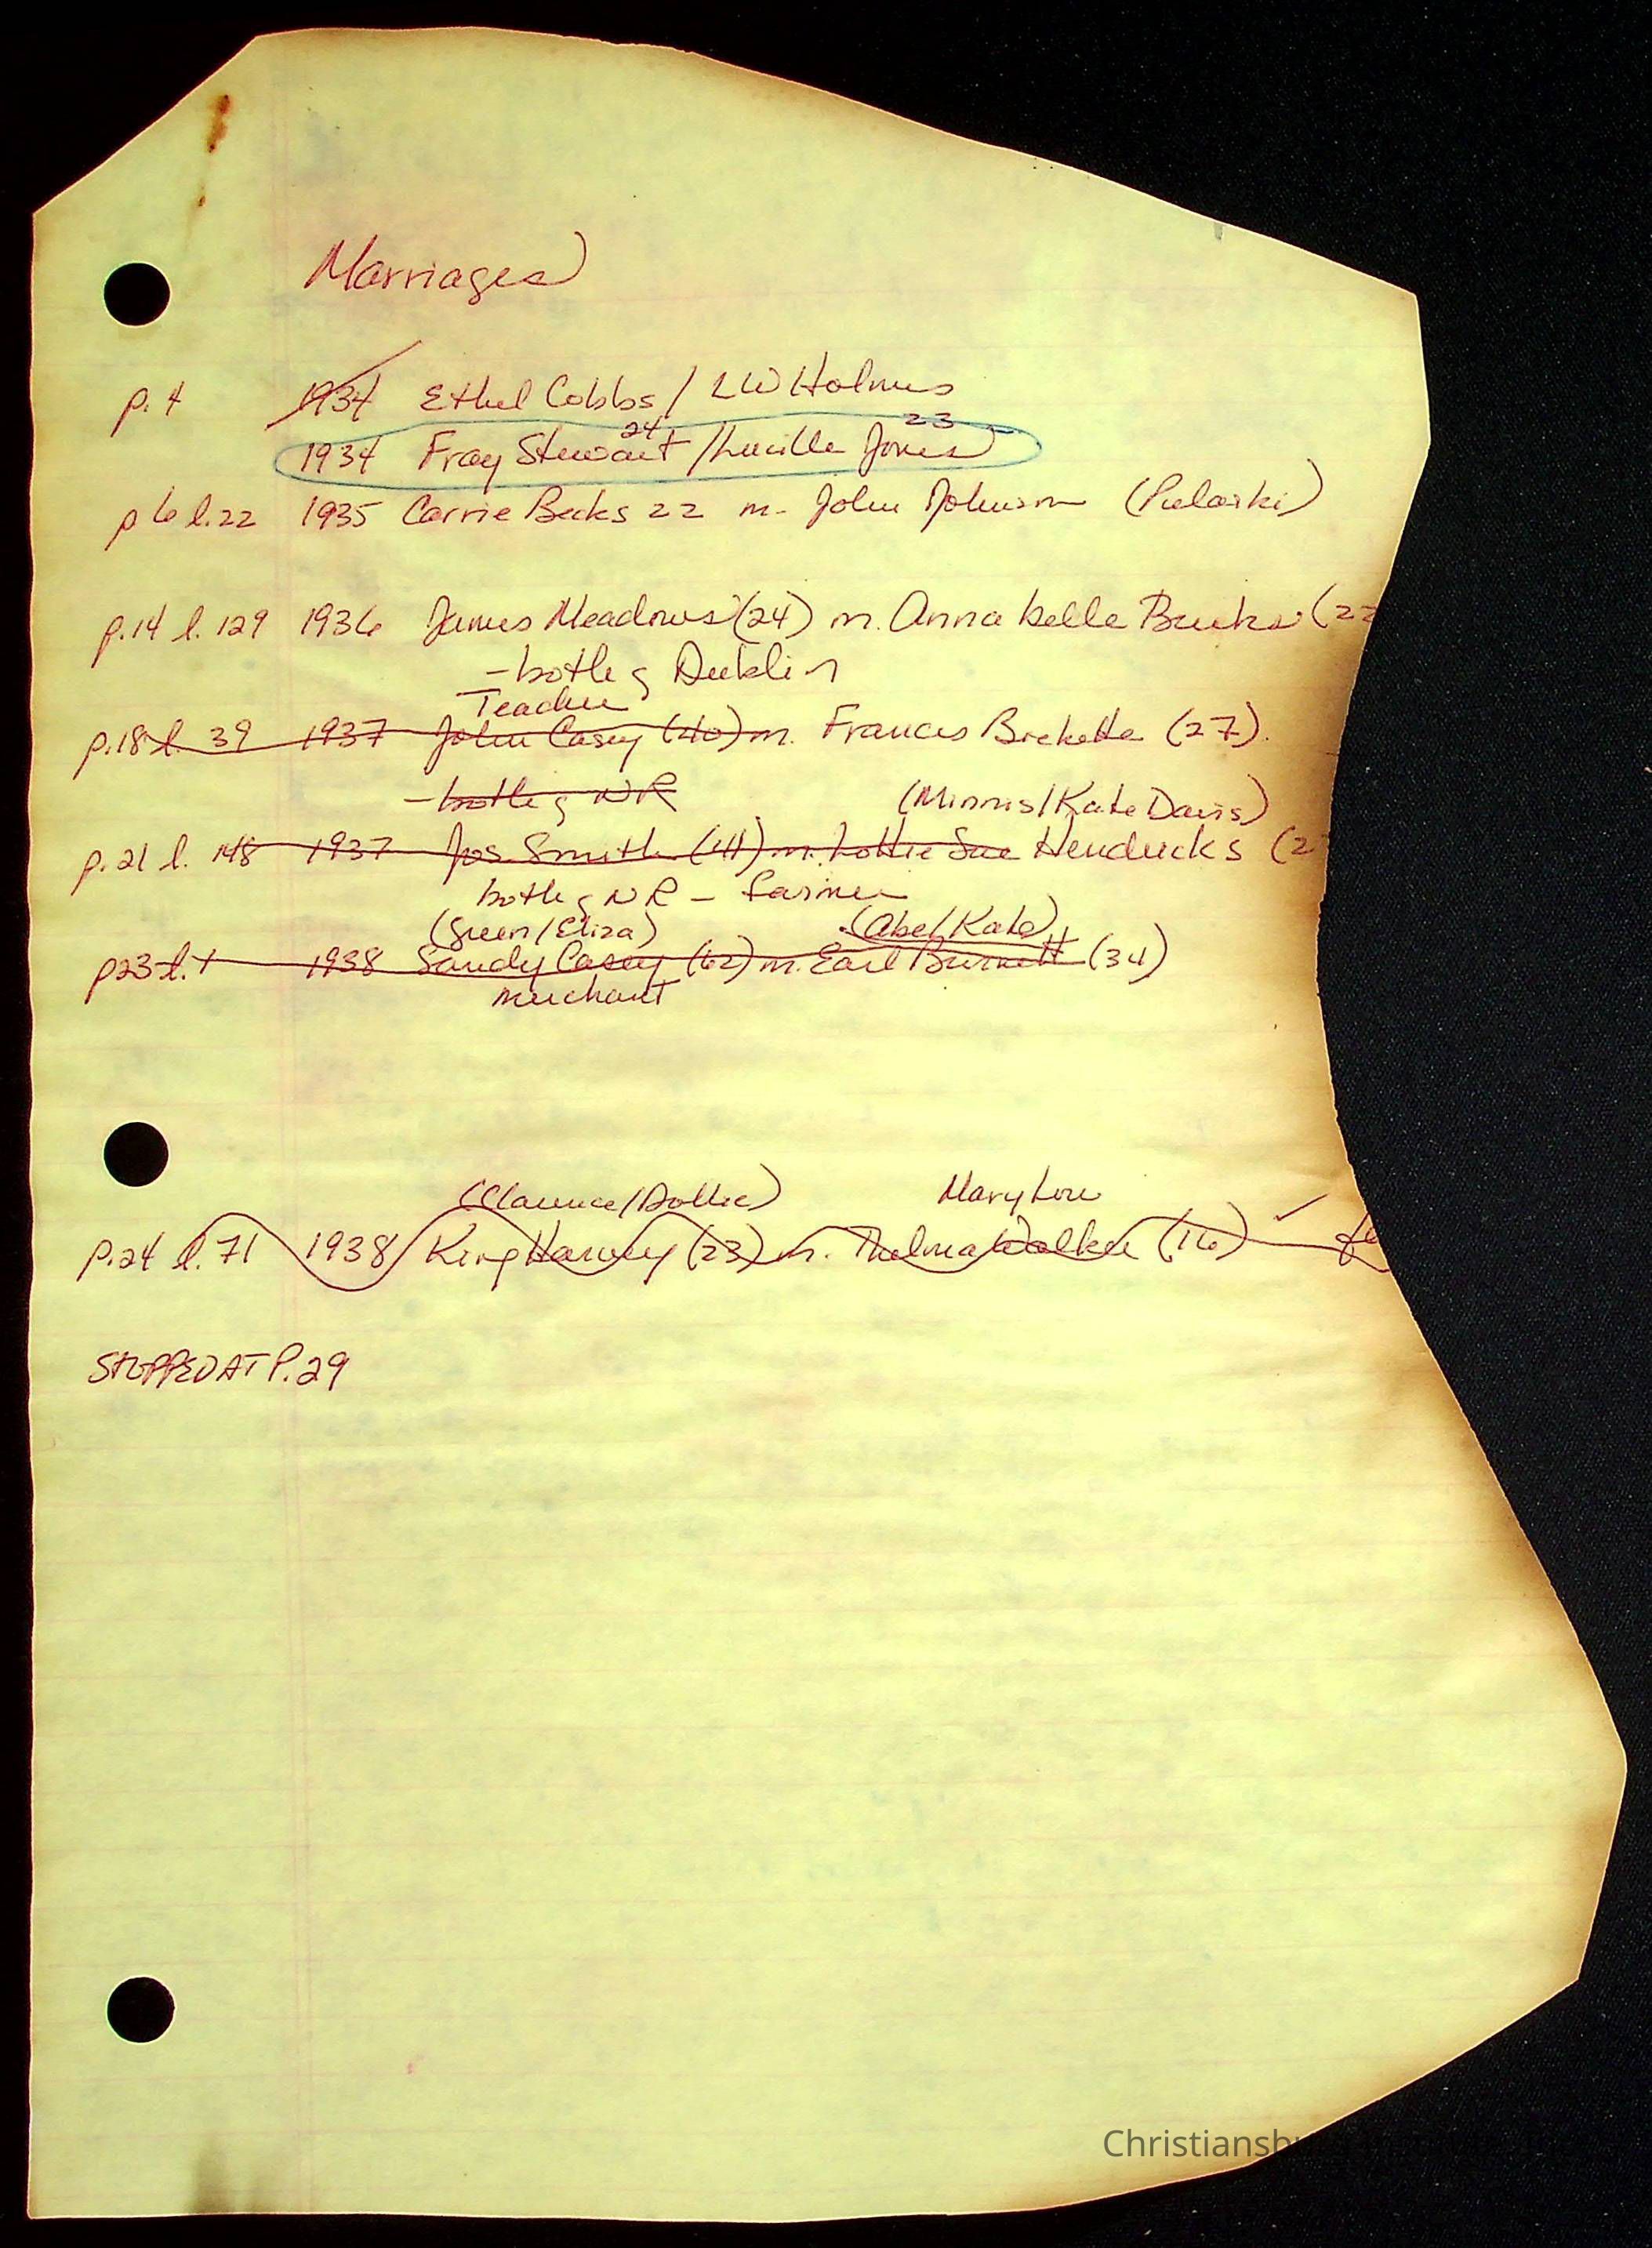 Marriages
p. 4 1934 Ethel Cobbs / LW Holmes
24 23
1934 Fray Stewart / Lucille Jones
p 6 l. 22 1935 Carrie Becks 22 m. John Johnson (Pulaski)
p. 14 l. 129 1936 James Meadows (24) m. Anna belle Burks (22
- both of Dublin
Teacher
p. 18 l. 39 1937 John Casey (40) m. Frances (27).
- both of NR
(Minnis/Kate Davis)
p. 21 l. 148 1937 Jos Smith (41) m. Lottie Sue Hendricks (2
both of NR - farmer
(Green/Eliza) (Abe/Kate)
p 23 l. 1 1938 Sandy Casey (62) m. Earl Burnett (34)
merchant
(Clarence/Dollie) Mary Lou
p. 24 l. 71 1938 King Harvey (23) m. Thelma Walker (16) ✓
STOPPED AT P. 29